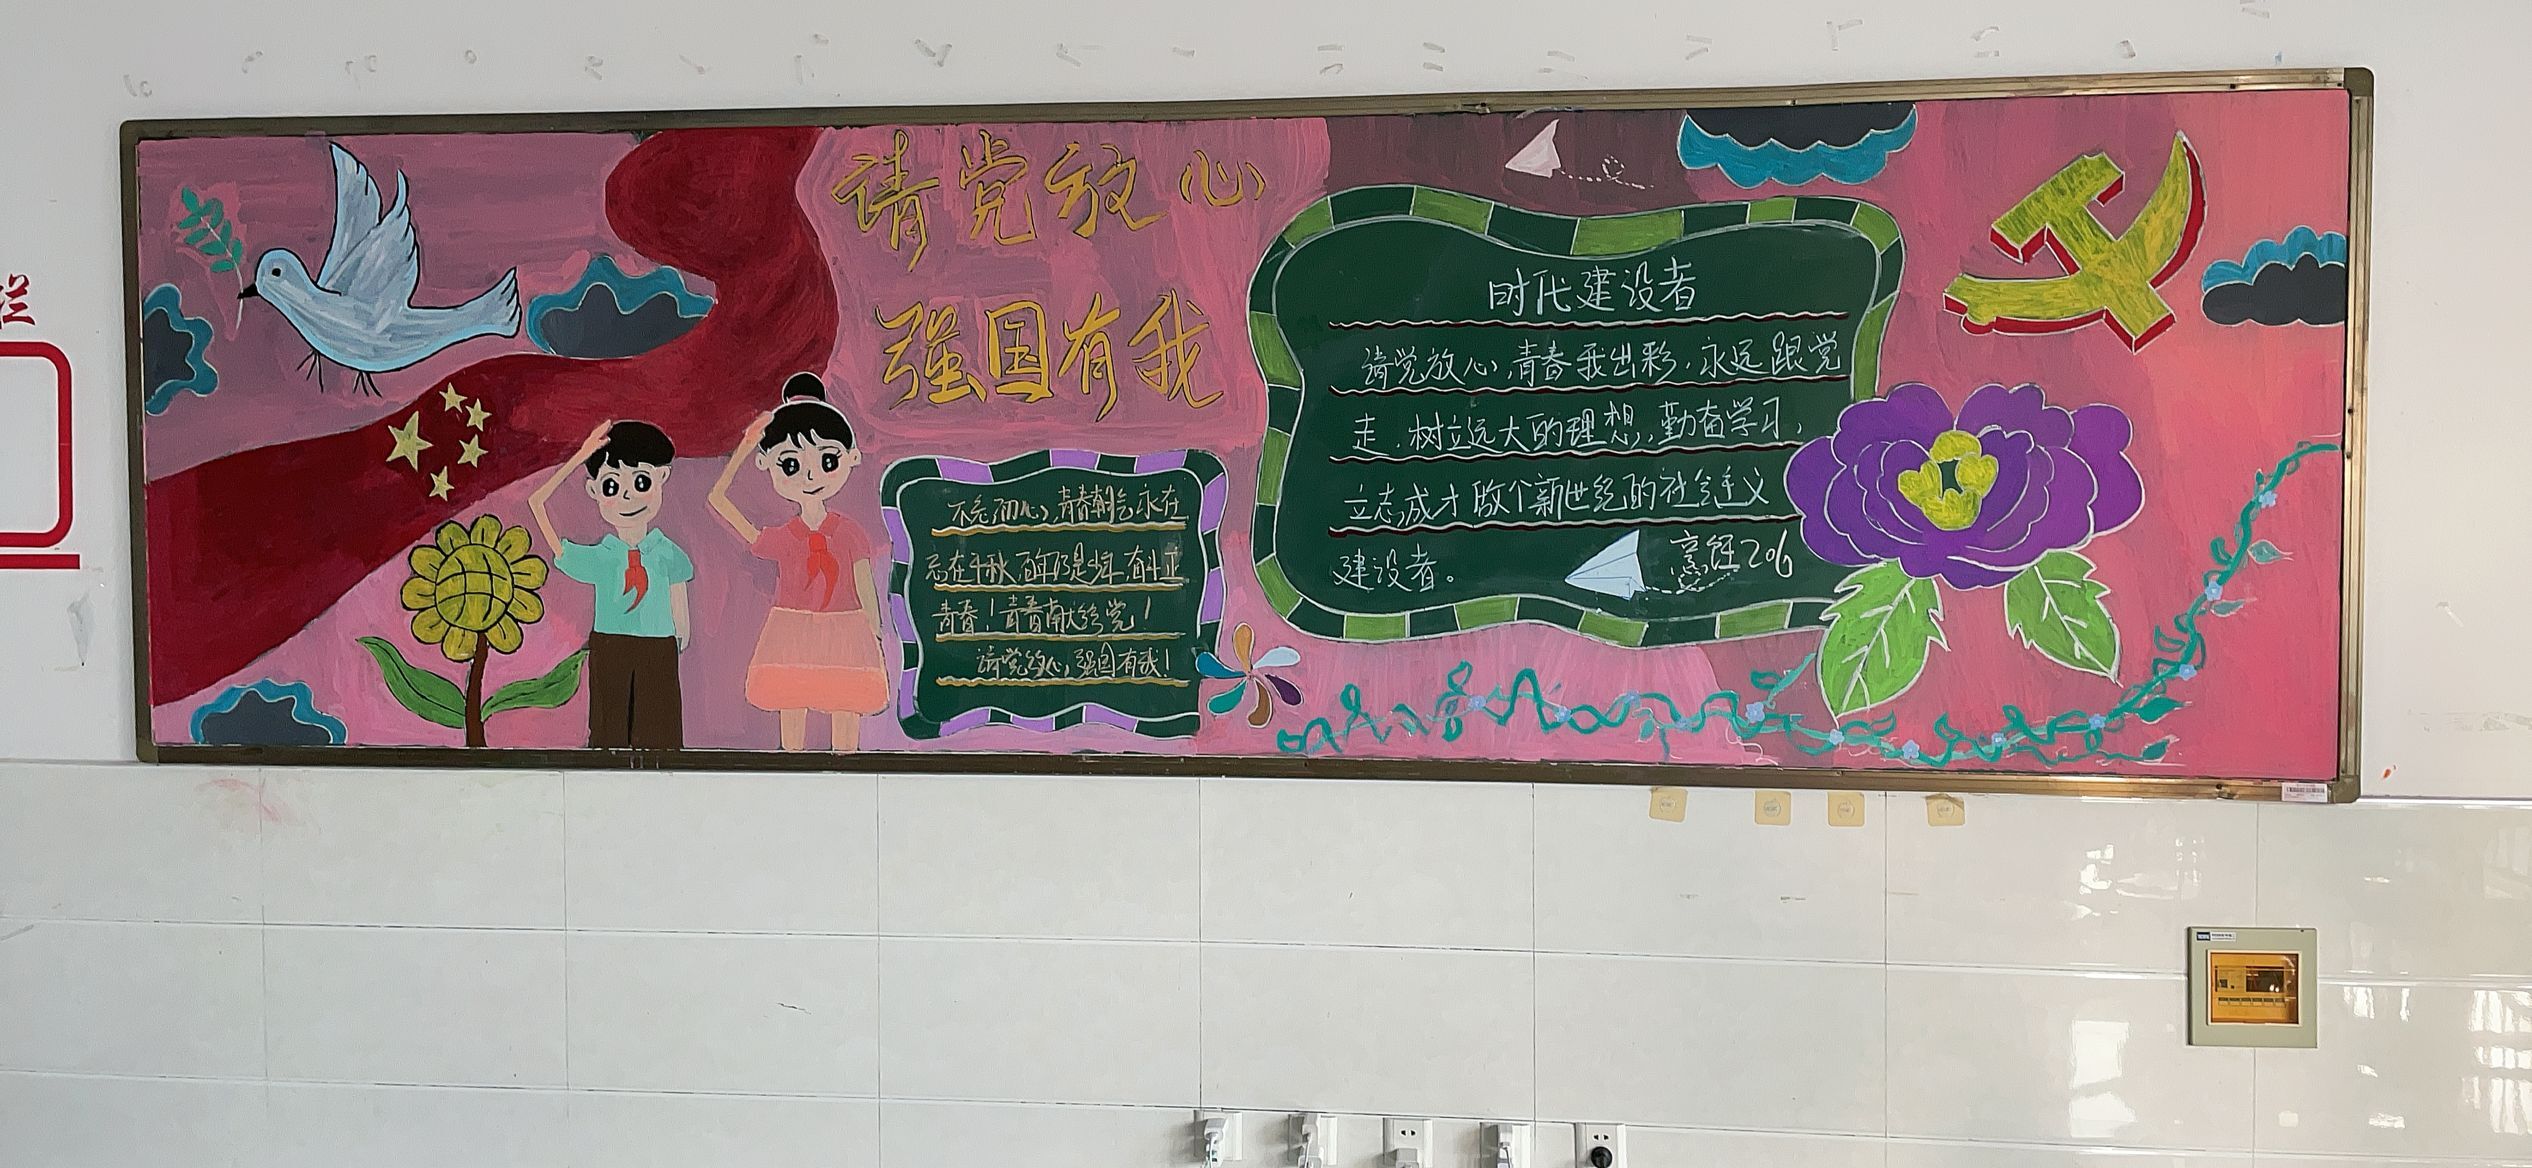 请党放心
强国有我
不忘初心，青春朝气永在
志在千秋，百年仍是少年，奋斗正
青春！青春献给党！
请党放心，强国有我！
时代建设者
请党放心，青春我出彩，永远跟党
走，树立远大的理想，勤奋学习，
立志成才做个新世纪的社会主义
建设者。
烹饪206
栏